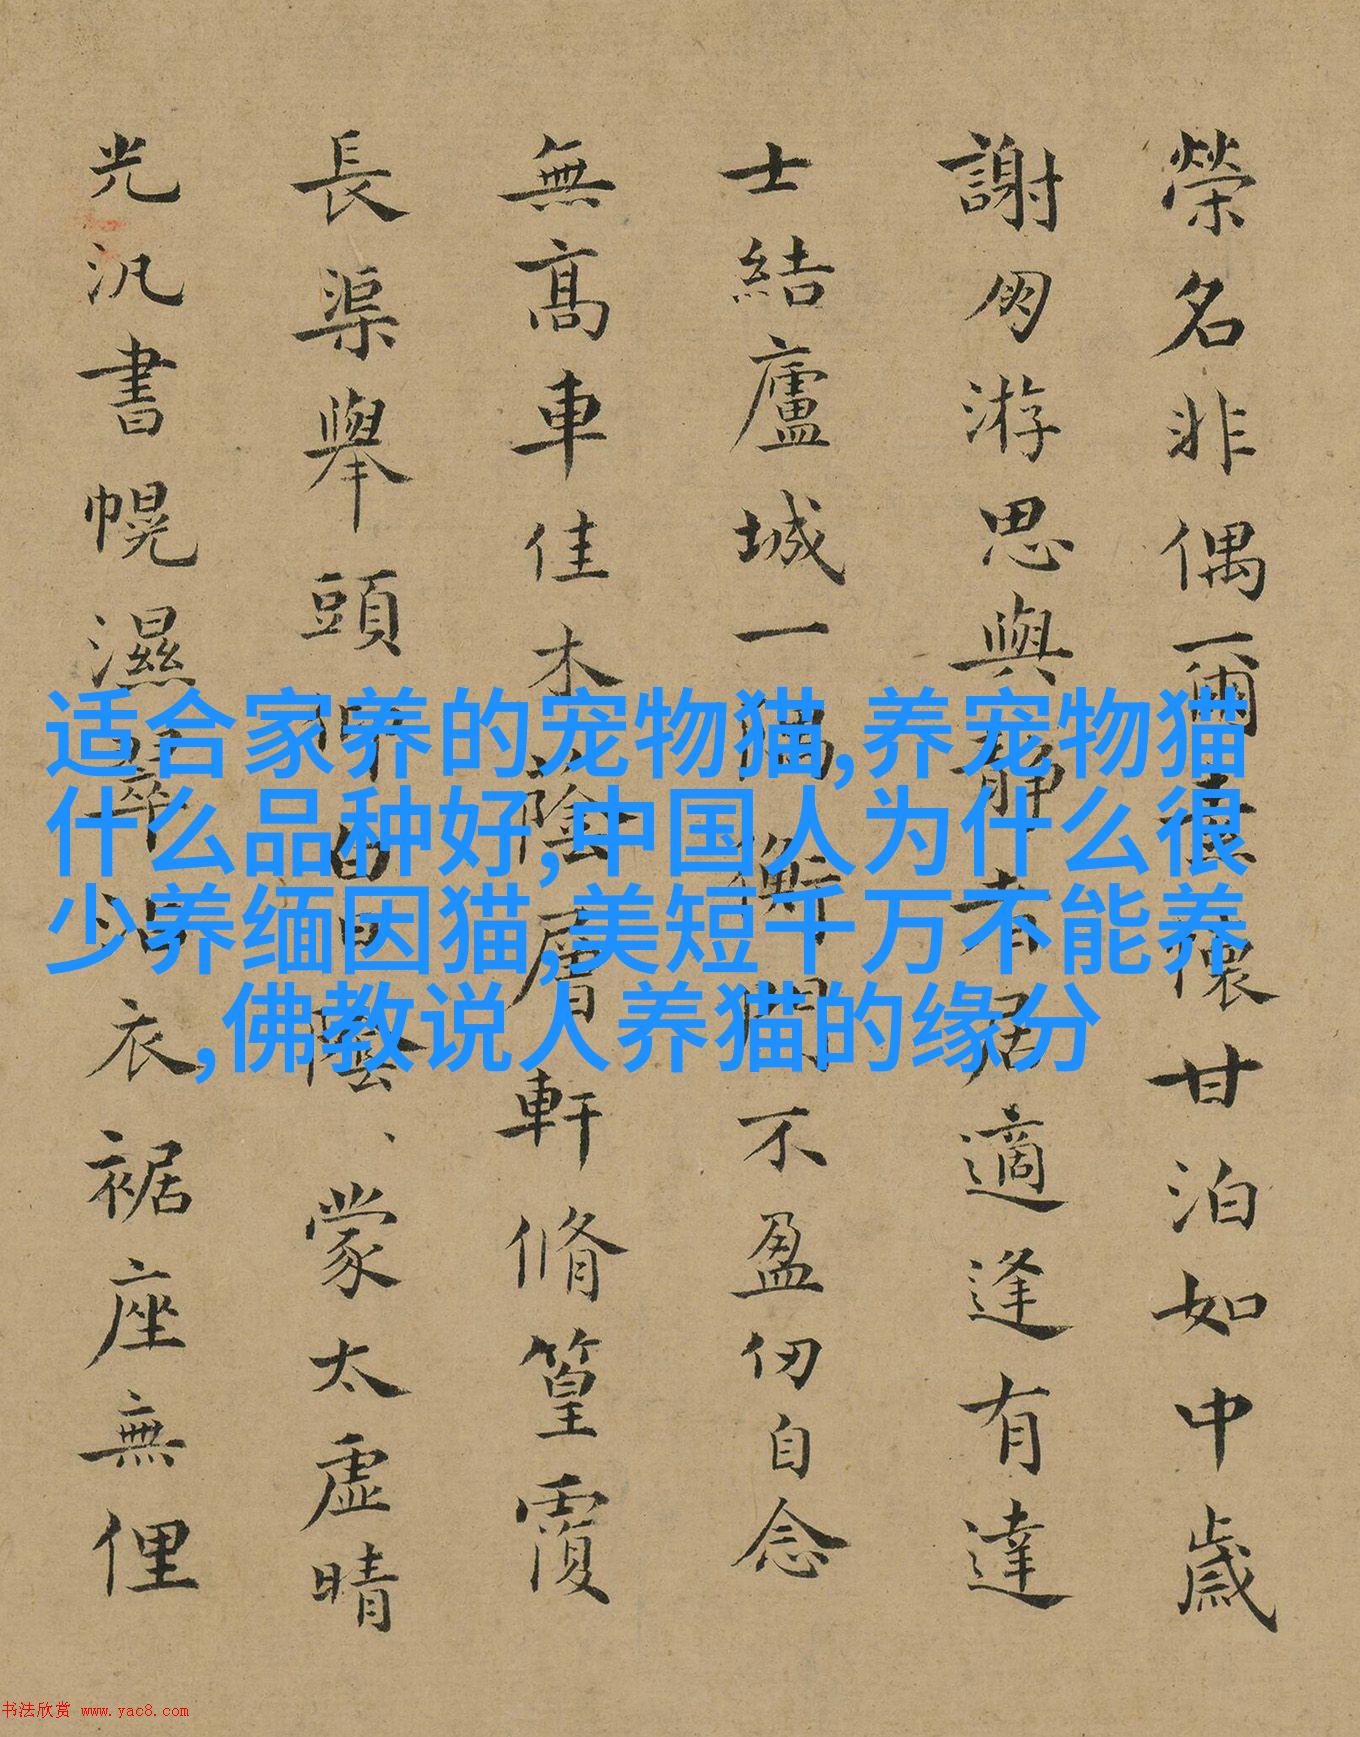 适合家养的宠物猫,养宠物猫
什么品种好,中国人为什么很
少养缅因猫,美短千万不能养
,佛教说人养猫的缘分
榮名非偶爾懷甘泊如中歲
謝朋游思與靜者居適逢有達
士結廬城一隅衡門不盈仞自念
無髙車佳木蔭層軒脩篁覆
長渠舉頭仰曾陰、蒙太虛晴
光汎書幌濕翠沾衣裾座無俚
书法欣赏 www.yac8.com